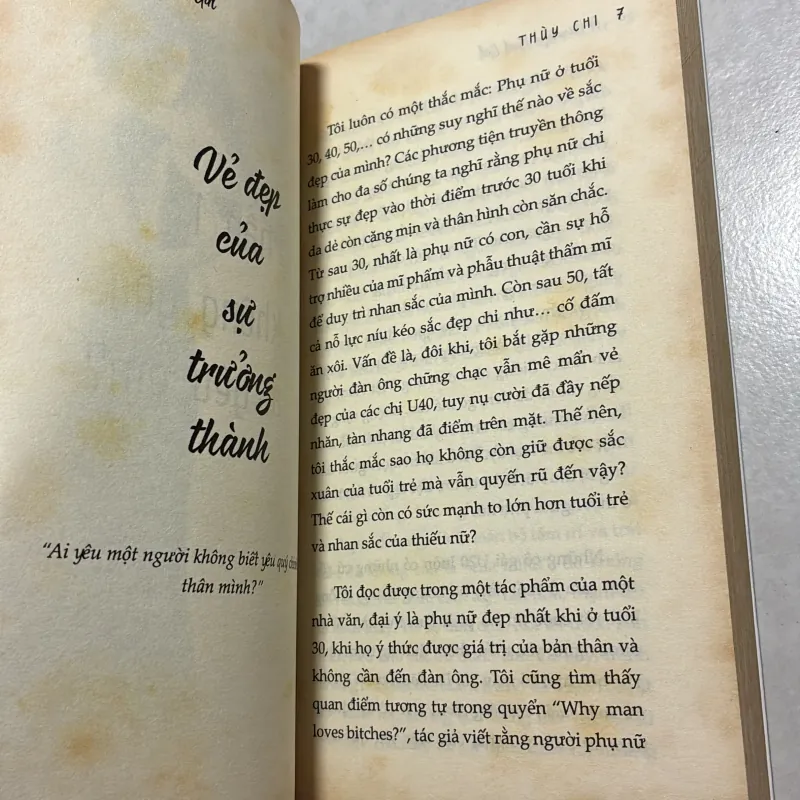 Vẻ đẹp
của
sự
trưởng
thành
"Ai yêu một người không biết yêu quý
thân mình?"
THÙY CHI 7
Tôi luôn có một thắc mắc: Phụ nữ ở tuổi
30, 40, 50,... có những suy nghĩ thế nào về sắc
đẹp của mình? Các phương tiện truyền thông
làm cho đa số chúng ta nghĩ rằng phụ nữ chỉ
thực sự đẹp vào thời điểm trước 30 tuổi khi
da dẻ còn căng mịn và thân hình còn săn chắc.
Từ sau 30, nhất là phụ nữ có con, cần sự hỗ
trợ nhiều của mĩ phẩm và phẫu thuật thẩm mĩ
để duy trì nhan sắc của mình. Còn sau 50, tất
cả nỗ lực níu kéo sắc đẹp chỉ như... cố đấm
ăn xôi. Vấn đề là, đôi khi, tôi bắt gặp những
người đàn ông chững chạc vẫn mê mẩn vẻ
đẹp của các chị U40, tuy nụ cười đã đầy nếp
nhăn, tàn nhang đã điểm trên mặt. Thế nên,
tôi thắc mắc sao họ không còn giữ được sắc
xuân của tuổi trẻ mà vẫn quyến rũ đến vậy?
Thế cái gì còn có sức mạnh to lớn hơn tuổi trẻ
và nhan sắc của thiếu nữ?
Tôi đọc được trong một tác phẩm của một
nhà văn, đại ý là phụ nữ đẹp nhất khi ở tuổi
30, khi họ ý thức được giá trị của bản thân và
không cần đến đàn ông. Tôi cũng tìm thấy
quan điểm tương tự trong quyển "Why man
loves bitches?", tác giả viết rằng người phụ nữ